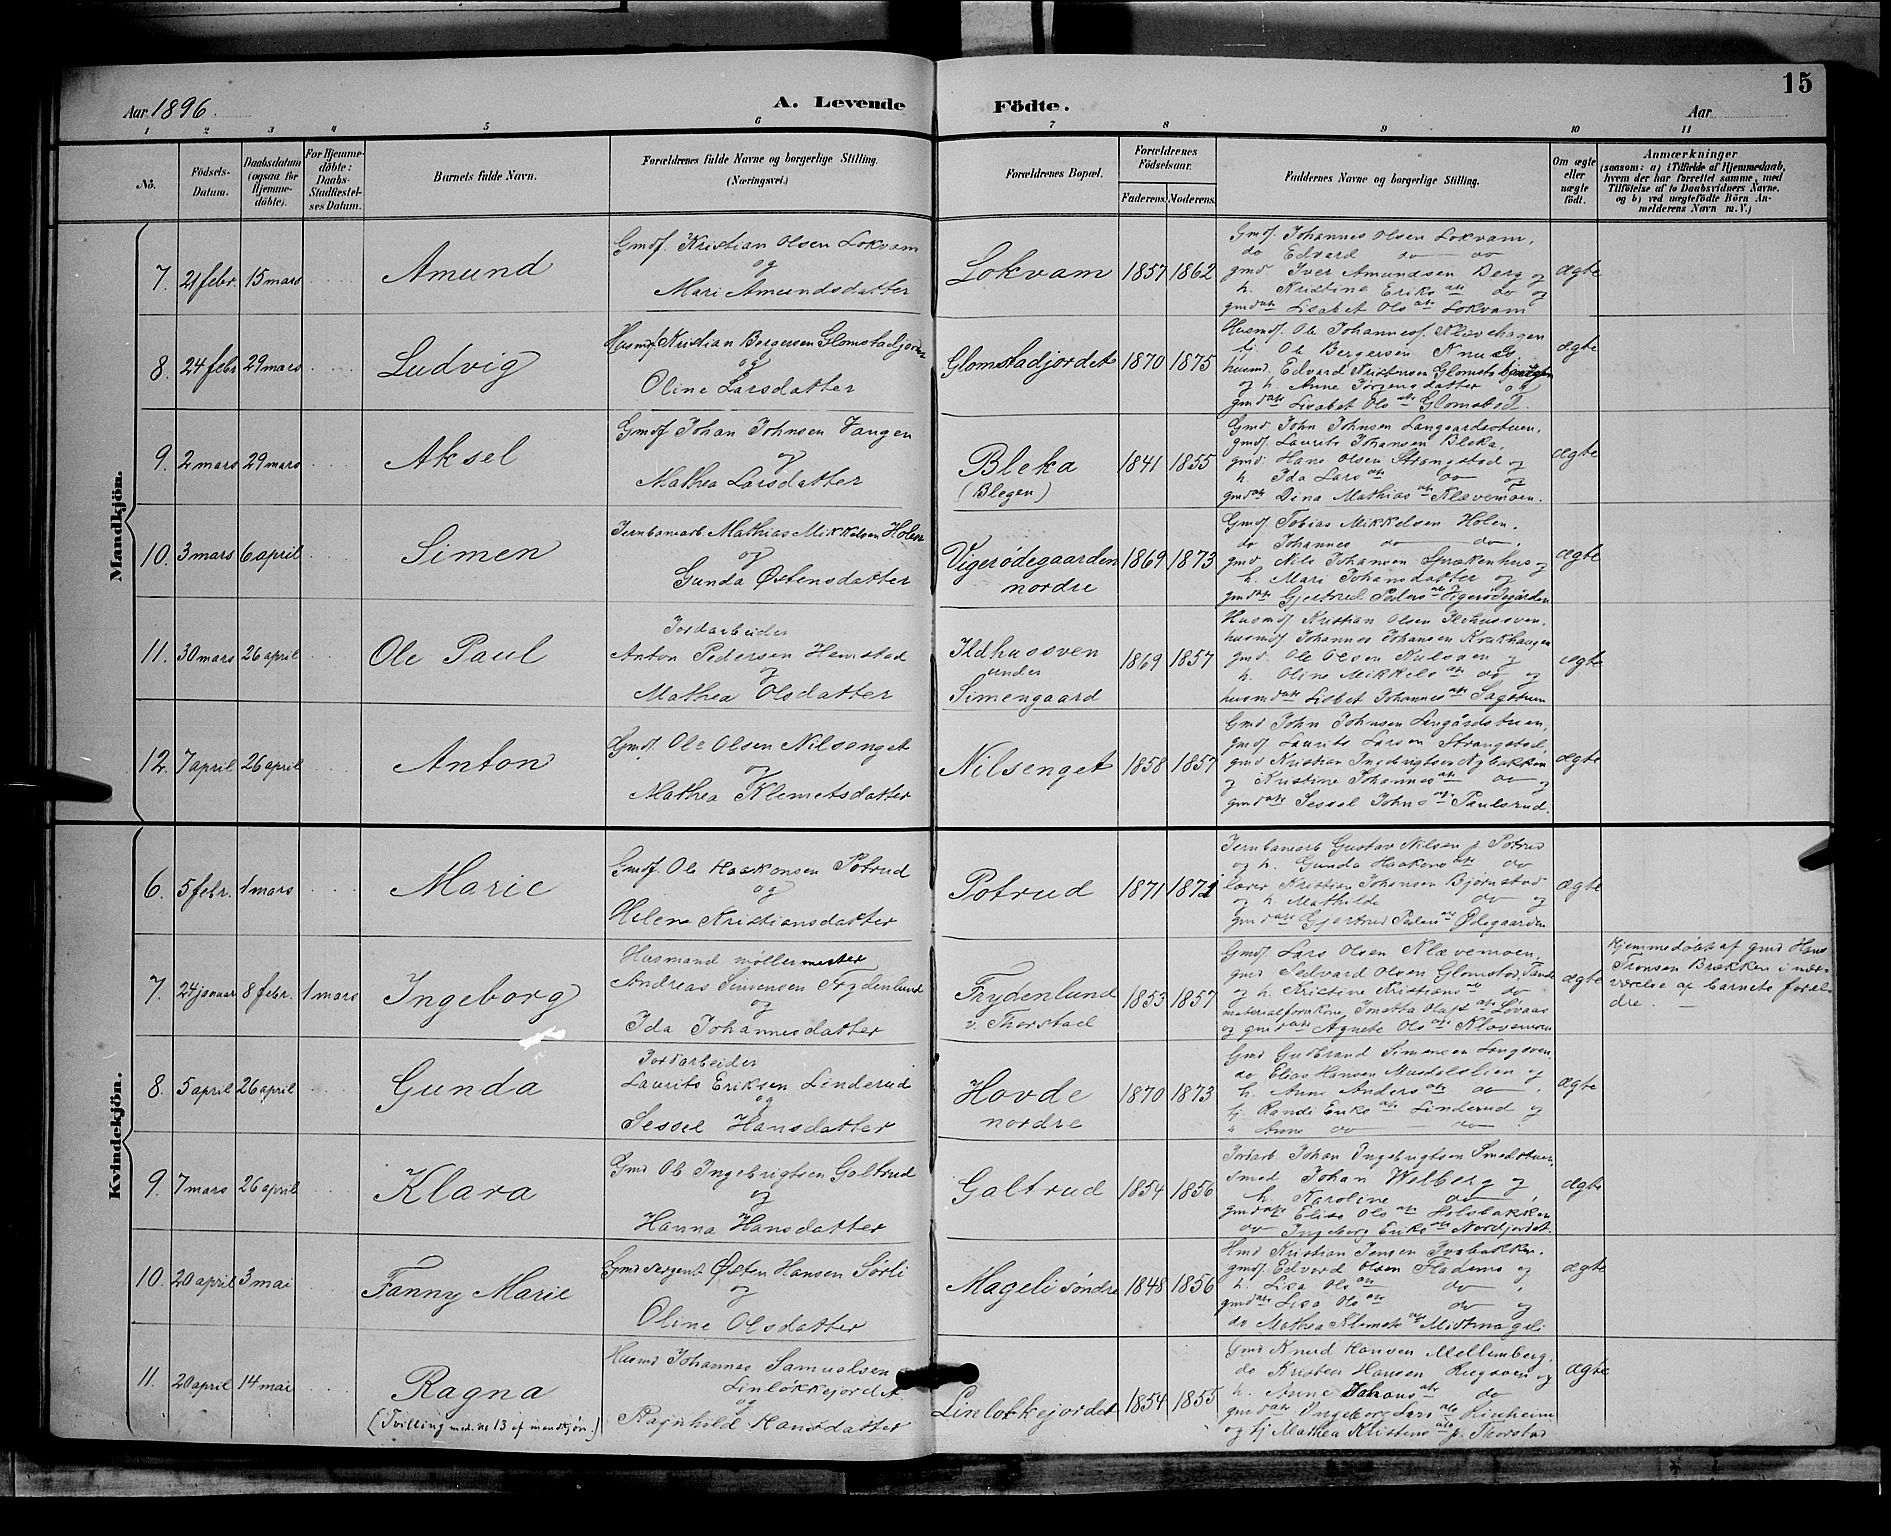 15
Aar 1896.
A. Levende Födte.
Aar
1 2 3 4 5 6 7 8 9 10 11
No.
Födsels-Datum.
Daabsdatum (ogsaa for Hjemme-döbte).
For Hjemme-döbte: Daabs-Stadfæstel-ses Datum.
Barnets fulde Navn.
Forældrenes fulde Navne og borgerlige Stilling.
(Næringsvei.)
Forældrenes Bopæl.
Forældrenes Födselsaar.
Faderens. Moderens.
Faddernes Navne og borgerlige Stilling.
Om ægte eller uægte födt.
Anmærkninger
(saasom: a) i Tilfælde af Hjemmedaab,
hvem der har forrettet samme, med
Tilföielse af to Daabsvidners Navne.
og b) ved uægtefödte Börn An-
melderens Navn m. V.)
Mandkjön.
7. 21 febr. 15 mars
Amund
Gmdf. Kristian Olsen Lokvam
og
Mari Amundsdatter
Lokvam
1857 1862
Gmdf. Johannes Olsen Lokvam,
do Edvard do do
gmd Iver Amundsen Berg og
h. Kristine Eriks dtr do og
gmd dtr Lisabet Ols dtr Lokvam
ægte
8. 24 febr 29 mars
Ludvig
Husmf Kristian Bergersen Glomstadjordet
og
Oline Larsdatter
Glomstadjordet
1870 1875
Husmdf. Ole Johannesf. Klævehagen
tj. Ole Bergersen
husmd. Edvard Kristensen
og h. Anne Jörgensdatter og
gmd dtr Lisabet Ols dtr Glomstad.
ægte
9. 2 mars 29 mars
Aksel
Gmdf Johan Johnsen Vangen
og
Mathea Larsdatter
Bleka
(Blegen)
1841 1855
Gmd John Johnsen Langaardsstuen,
gmdf. Laurits Johansen Bleka,
gmd. Hans Olsen Strangstad og
h. Ida Lars dtr do og
gmd dtr Dina Mathias dtr Klævemoen.
ægte
10. 3 mars 6 april
Simen
Jernbanearb. Mathias Mikkelsen Holen
og
Gunda Østensdatter
Vigerødegaarden
nordre
1869 1873
Gmdf. Tobias Mikkelsen Holen,
do Johannes do do,
gmd. Nils Johansen Sprækenhus og
h. Mari Johansdatter og
gmd dtr Gjertrud Peders dtr Vigerødegården
ægte
11. 30 mars 26 april
Ole Paul
Jordarbeider
Anton Pedersen Hemstad
og
Mathea Olsdatter
Ildhussven
under
Simengaard
1869 1857
Husmdf Kristian Olsen Ildhussven,
husmdf Johannes Johansen Krækhaugen
gmd. Ole Olsen og
h. Oline Mikkels dtr do og
husmd dtr Lisbet Johannes dtr Sagstuen
ægte
12. 7 april 26 april
Anton
Gmdf. Ole Olsen Nilsenget
og
Mathea Klemetsdatter
Nilsenget
1858 1857
Gmd John Johnsen Langårdstuen,
gmdf Laurits Larsen Strangstad,
gmd Kristian Ingebrigtsen Nybakken
og Kristine Johannes dtr do og
gmd dtr Sessel Johns dtr Paulsrud.
ægte
Kvindekjön.
6. 5 febr. 1 mars
Marie
Gmdf. Ole Haakonsen Potrud
og
Helene Kristiansdatter
Potrud
1871 1871
Jernbanearb Gustav Nilsen p. Potrud
og h. Gunda Haakons dtr do
lærer Kristian Johansen Bjørnstad
og h. Mathilde do og
gmd dtr Gjertrud Peders dtr Ødegaarden
ægte
7. 24 januar 8 febr. 1 mars
Ingeborg
Husmand møllermester
Andreas Simensen Frydenlund
og
Ida Johannesdatter
Frydenlund
v. Thorstad
1853 1857
Gmdf. Lars Olsen Klævemoen,
gmd Sedvard Olsen Glomstad
og h. Kristine Kristians dtr do
materialforv. Jonetta Olufs dtr Løvaas
og gmd dtr Agnete Ols dtr Klævemoen
ægte
Hjemmedøbt af gmd Hans
Tronsen Brækken i nær-
værelse af barnets foræl-
dre. —
8. 5 april 26 april
Gunda
Jordarbeider
Laurits Eriksen Linderud
og
Sessel Hansdatter
Hovde
nordre
1870 1873
Gmd Gudbrand Simensen Langsven
do Elias Hansen Musdalslien og
h. Anne Anders dtr do,
tj. Randi Eriks dtr Linderud og
" Anne do do
ægte
9. 7 mars 26 april
Klara
Gmd Ole Ingebrigtsen Galtrud
og
Hanna Hansdatter
Galtrud
1854 1856
Jordarb Johan Ingebrigtsen Smedstuen,
Smed Johan Welberg og
h. Karoline do,
gmd dtr Elise Ols dtr Holsbakken
do Ingeborg Eriks dtr Nordjordet.
ægte
10. 20 april 3 mai
Fanny Marie
Gmd sergent Østen Hansen Sørli
og
Oline Olsdatter
Mageli søndre
1848 1856
Hmd Kristian Jensen
gmdf. Edvard Olsen og
h. Lisa Ols dtr do,
gmd dtr Lisa Ols dtr do og
do Mathea Klemets dtr Midtmageli
ægte
11. 20 april 14 mai
Ragna
(Tvilling med no 13 af mandkjøn.)
Husmd Johannes Samuelsen
Linløkkejordet
og
Ragnhild Hansdatter
Linløkkejordet
1854 1855
Gmd Knud Hansen Mellemberg,
do Kristen Hansen og
h. Anne Johans dtr do
gmd dtr Ingeborg Lars dtr
og tj Mathea Kristens dtr p. Thorstad
ægte